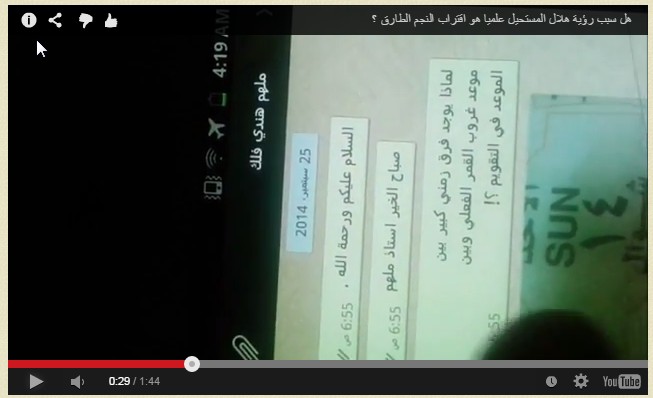 هل سبب رؤية هلال المستحيل علميا هو اقتراب النجم الطارق ؟
4:19 AM
ملهم هندي فلك
25 سبتمبر، 2014
السلام عليكم ورحمة الله .
6:55 ص
صباح الخير استاذ ملهم
6:55 ص
لماذا يوجد فرق زمني كبير بين
موعد غروب القمر الفعلي وبين
الموعد في التقويم ؟!
6:55
الأحد
SUN
١٤
شوال
0:29 / 1:44
YouTube